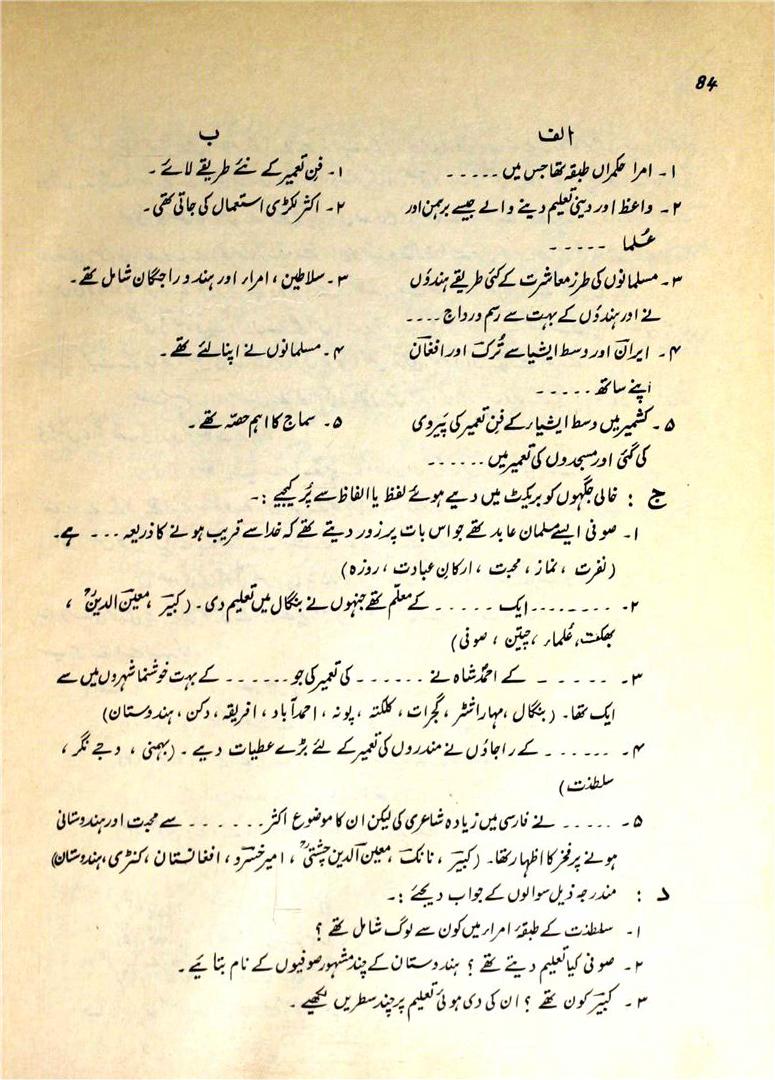 84
الف ب
۱۔ امرا حکمراں طبقہ تھا جس میں ..... ۱۔ فنِ تعمیر کے نئے طریقے لائے۔
۲۔ واعظ اور دینی تعلیم دینے والے جیسے برہمن اور ۲۔ اکثر لکڑی استعمال کی جاتی تھی۔
عُلما .....
۳۔ مسلمانوں کی طرز معاشرت کے کئی طریقے ہندوٗں ۳۔ سلاطین، امراء اور ہندو راجگان شامل تھے۔
نے اور ہندوٗں کے بہت سے رسم و رداج ....
۴۔ ایران اور وسط ایشیا سے تُرک اور افغان ۴۔ مسلمانوں نے اپنا لئے تھے۔
اپنے ساتھ .....
۵۔ کشمیر میں وسط ایشیاء کے فنِ تعمیر کی پَیروی ۵۔ سماج کا اہم حصّہ تھے۔
کی گئی اور مسجدوں کی تعمیر میں ......
ج : خالی جگہوں کو بریکٹ میں دیے ہوئے لفظ یا الفاظ سے پُر کیجیے :۔
۱۔ صوفی ایسے مسلمان عابد تھے جو اس بات پر زور دیتے تھے کہ خدا سے قریب ہونے کا ذریعہ ... ہے۔
(نفرت، نماز، محبت، ارکانِ عبادت، روزہ)
۲۔ ........ ایک ..... کے معلّم تھے جنہوں نے بنگال میں تعلیم دی۔ (کبیر، معین الدینؒ،
بھکت، عُلماء، چیتن، صوفی)
۳۔ ..... کے احمد شاہ نے ...... کی تعمیر کی جو ...... کے بہت خوشنما شہروں میں سے
ایک تھا۔ (بنگال، مہاراشٹر، گجرات، کلکتہ، پونہ، احمد آباد، افریقہ، دکن، ہندوستان)
۴۔ ...... کے راجاؤں نے مندروں کی تعمیر کے لئے بڑے عطیات دیے۔ (بہمنی، وجے نگر،
سلطنت)
۵۔ ..... نے فارسی میں زیادہ شاعری کی لیکن ان کا موضوع اکثر ...... سے محبت اور ہندوستانی
ہونے پر فخر کا اظہار تھا۔ (کبیر، نانک، معین الدین چشتیؒ، امیر خسرو، افغانستان، کنڑی، ہندوستان)
د : مندرجہ ذیل سوالوں کے جواب دیجئے :۔
۱۔ سلطنت کے طبقۂ امراء میں کون سے لوگ شامل تھے؟
۲۔ صوفی کیا تعلیم دیتے تھے؟ ہندوستان کے چند مشہور صوفیوں کے نام بتایئے۔
۳۔ کبیر کون تھے؟ ان کی دی ہوئی تعلیم پر چند سطریں لکھیے۔